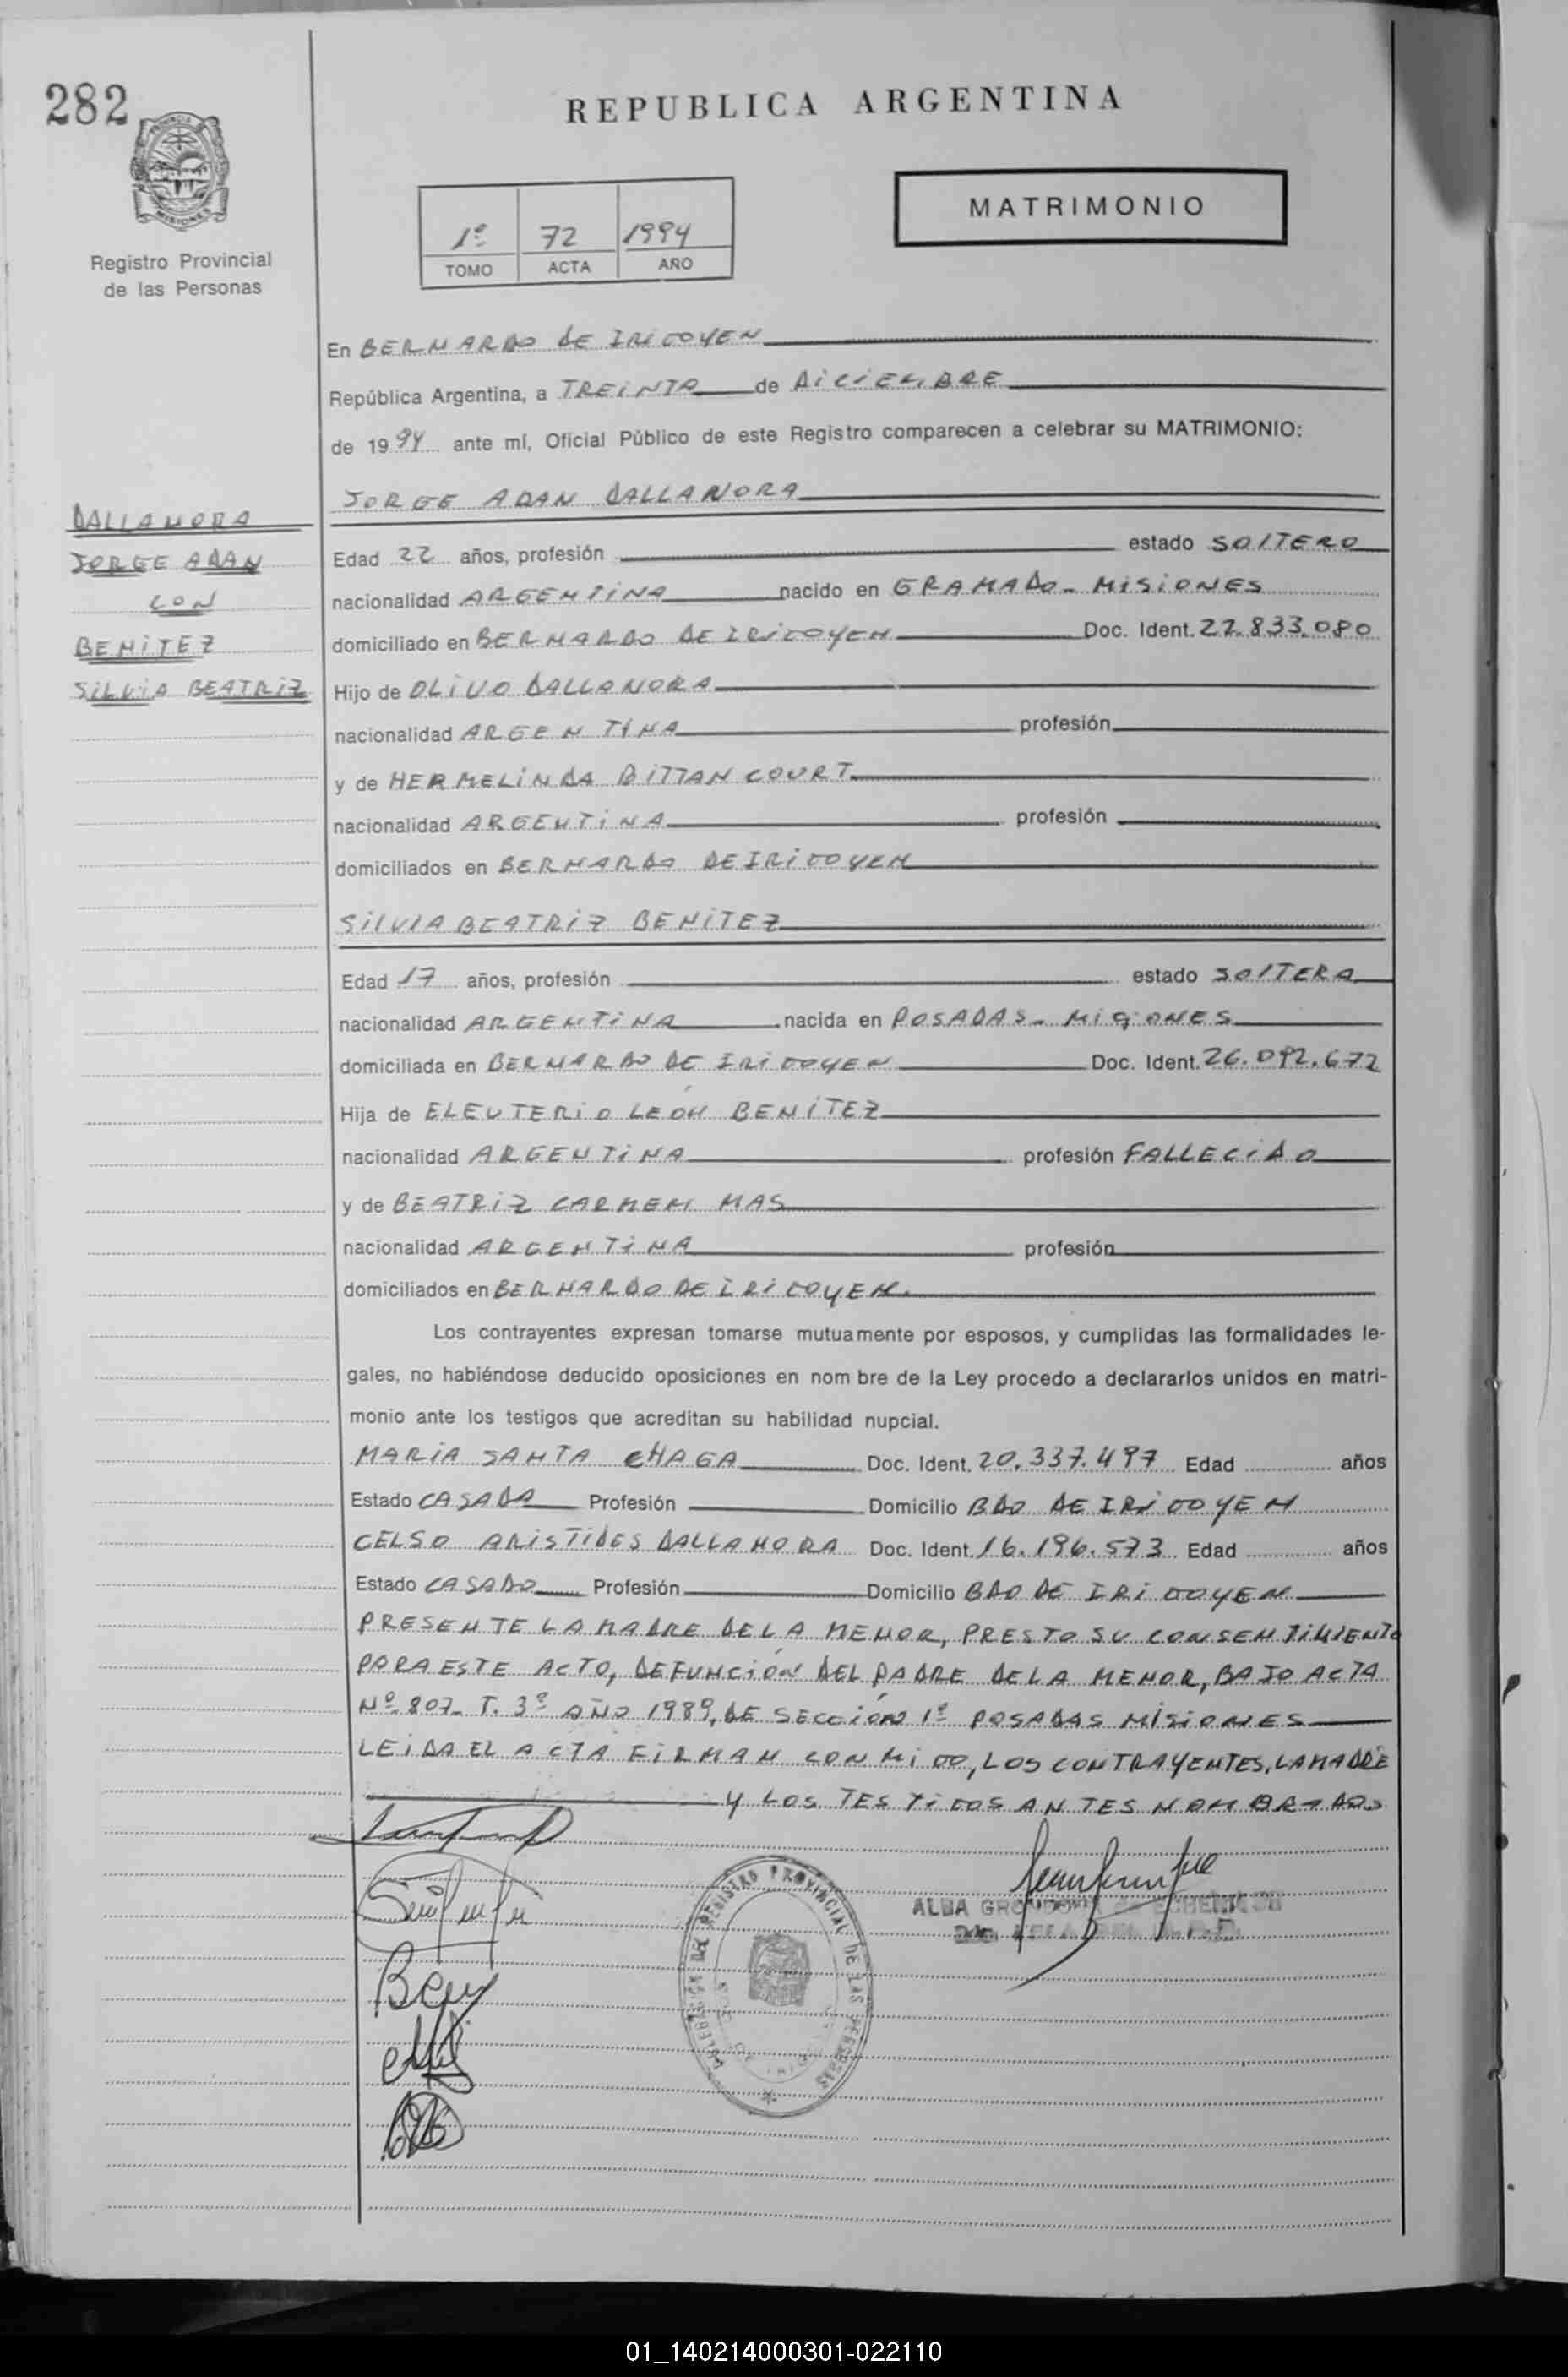 282
REPUBLICA ARGENTINA
PROVINCIA
MISIONES
Registro Provincial
de las Personas
1º 72 1994
TOMO ACTA AÑO
MATRIMONIO
En BERNARDO DE IRIGOYEN
República Argentina, a TREINTA de DICIEMBRE
de 1994 ante mí, Oficial Público de este Registro comparecen a celebrar su MATRIMONIO:
DALLANORA
JORGE ADAN
CON
BENITEZ
SILVIA BEATRIZ
JORGE ADAN DALLANORA
Edad 22 años, profesión estado SOLTERO
nacionalidad ARGENTINA nacido en GRAMADO - MISIONES
domiciliado en BERNARDO DE IRIGOYEN Doc. Ident. 22.833.080
Hijo de OLIVO DALLANORA
nacionalidad ARGENTINA profesión
y de HERMELINDA BITTANCOURT
nacionalidad ARGENTINA profesión
domiciliados en BERNARDO DE IRIGOYEN
SILVIA BEATRIZ BENITEZ
Edad 17 años, profesión estado SOLTERA
nacionalidad ARGENTINA nacida en POSADAS - MISIONES
domiciliada en BERNARDO DE IRIGOYEN Doc. Ident. 26.092.672
Hija de ELEUTERIO LEÓN BENÍTEZ
nacionalidad ARGENTINA profesión FALLECIDO
y de BEATRIZ CARMEN MAS
nacionalidad ARGENTINA profesión
domiciliados en BERNARDO DE IRIGOYEN.
Los contrayentes expresan tomarse mutuamente por esposos, y cumplidas las formalidades le-
gales, no habiéndose deducido oposiciones en nom bre de la Ley procedo a declararlos unidos en matri-
monio ante los testigos que acreditan su habilidad nupcial.
MARIA SANTA CHAGA Doc. Ident. 20.337.497 Edad años
Estado CASADA Profesión Domicilio BDO DE IRIGOYEN
CELSO ARISTIDES DALLANORA Doc. Ident. 16.196.573 Edad años
Estado CASADO Profesión Domicilio BDO DE IRIGOYEN
PRESENTE LA MADRE DE LA MENOR, PRESTO SU CONSENTIMIENTO
PARA ESTE ACTO, DEFUNCIÓN DEL PADRE DE LA MENOR, BAJO ACTA
Nº 807- T. 3º AÑO 1989, DE SECCIÓN 1º POSADAS MISIONES
LEIDA EL ACTA FIRMAN CONMIGO, LOS CONTRAYENTES, LA MADRE
Y LOS TESTIGOS ANTES NOMBRADOS
ALBA
DEL REGISTRO PROVINCIAL DE LAS PERSONAS
01_140214000301-022110